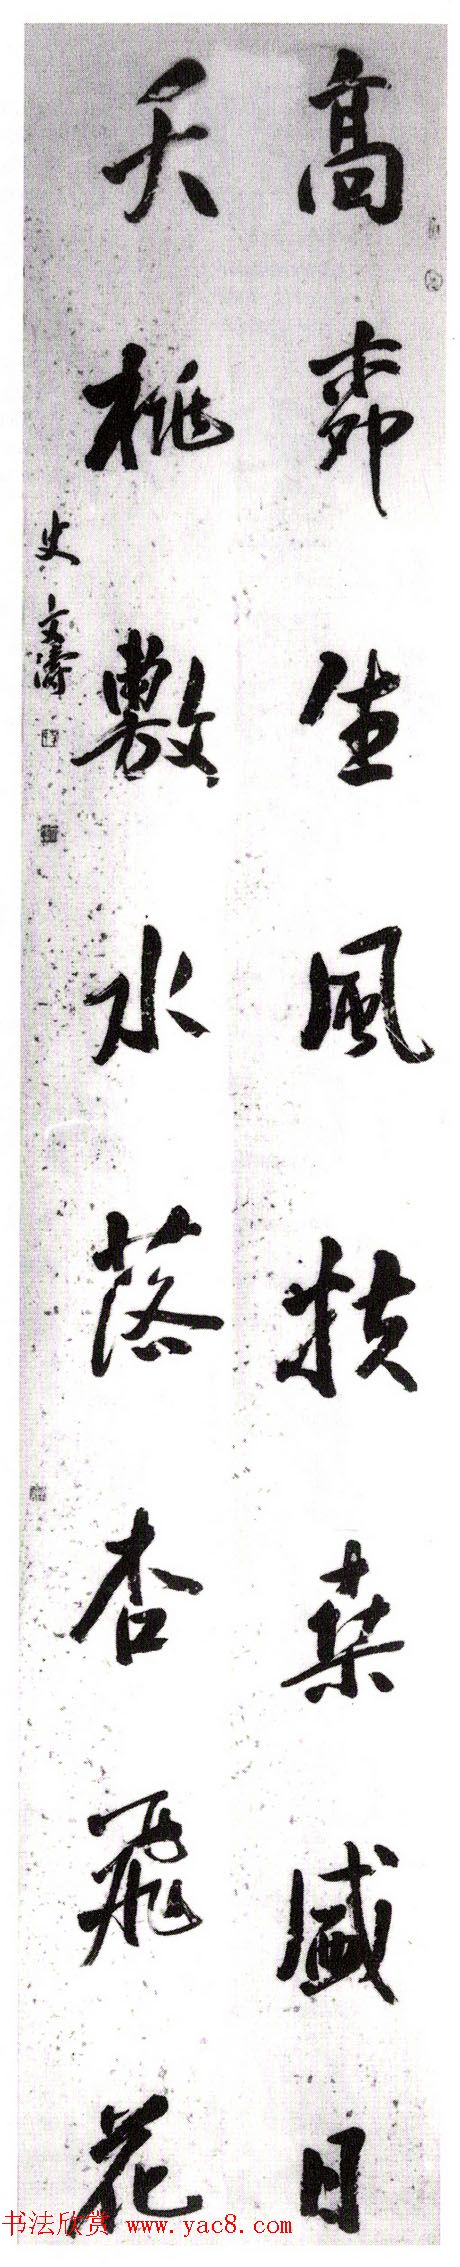 高柳生風扶桑盛日
夭桃敷水落杏飛花
史文濤
书法欣赏 www.yac8.com